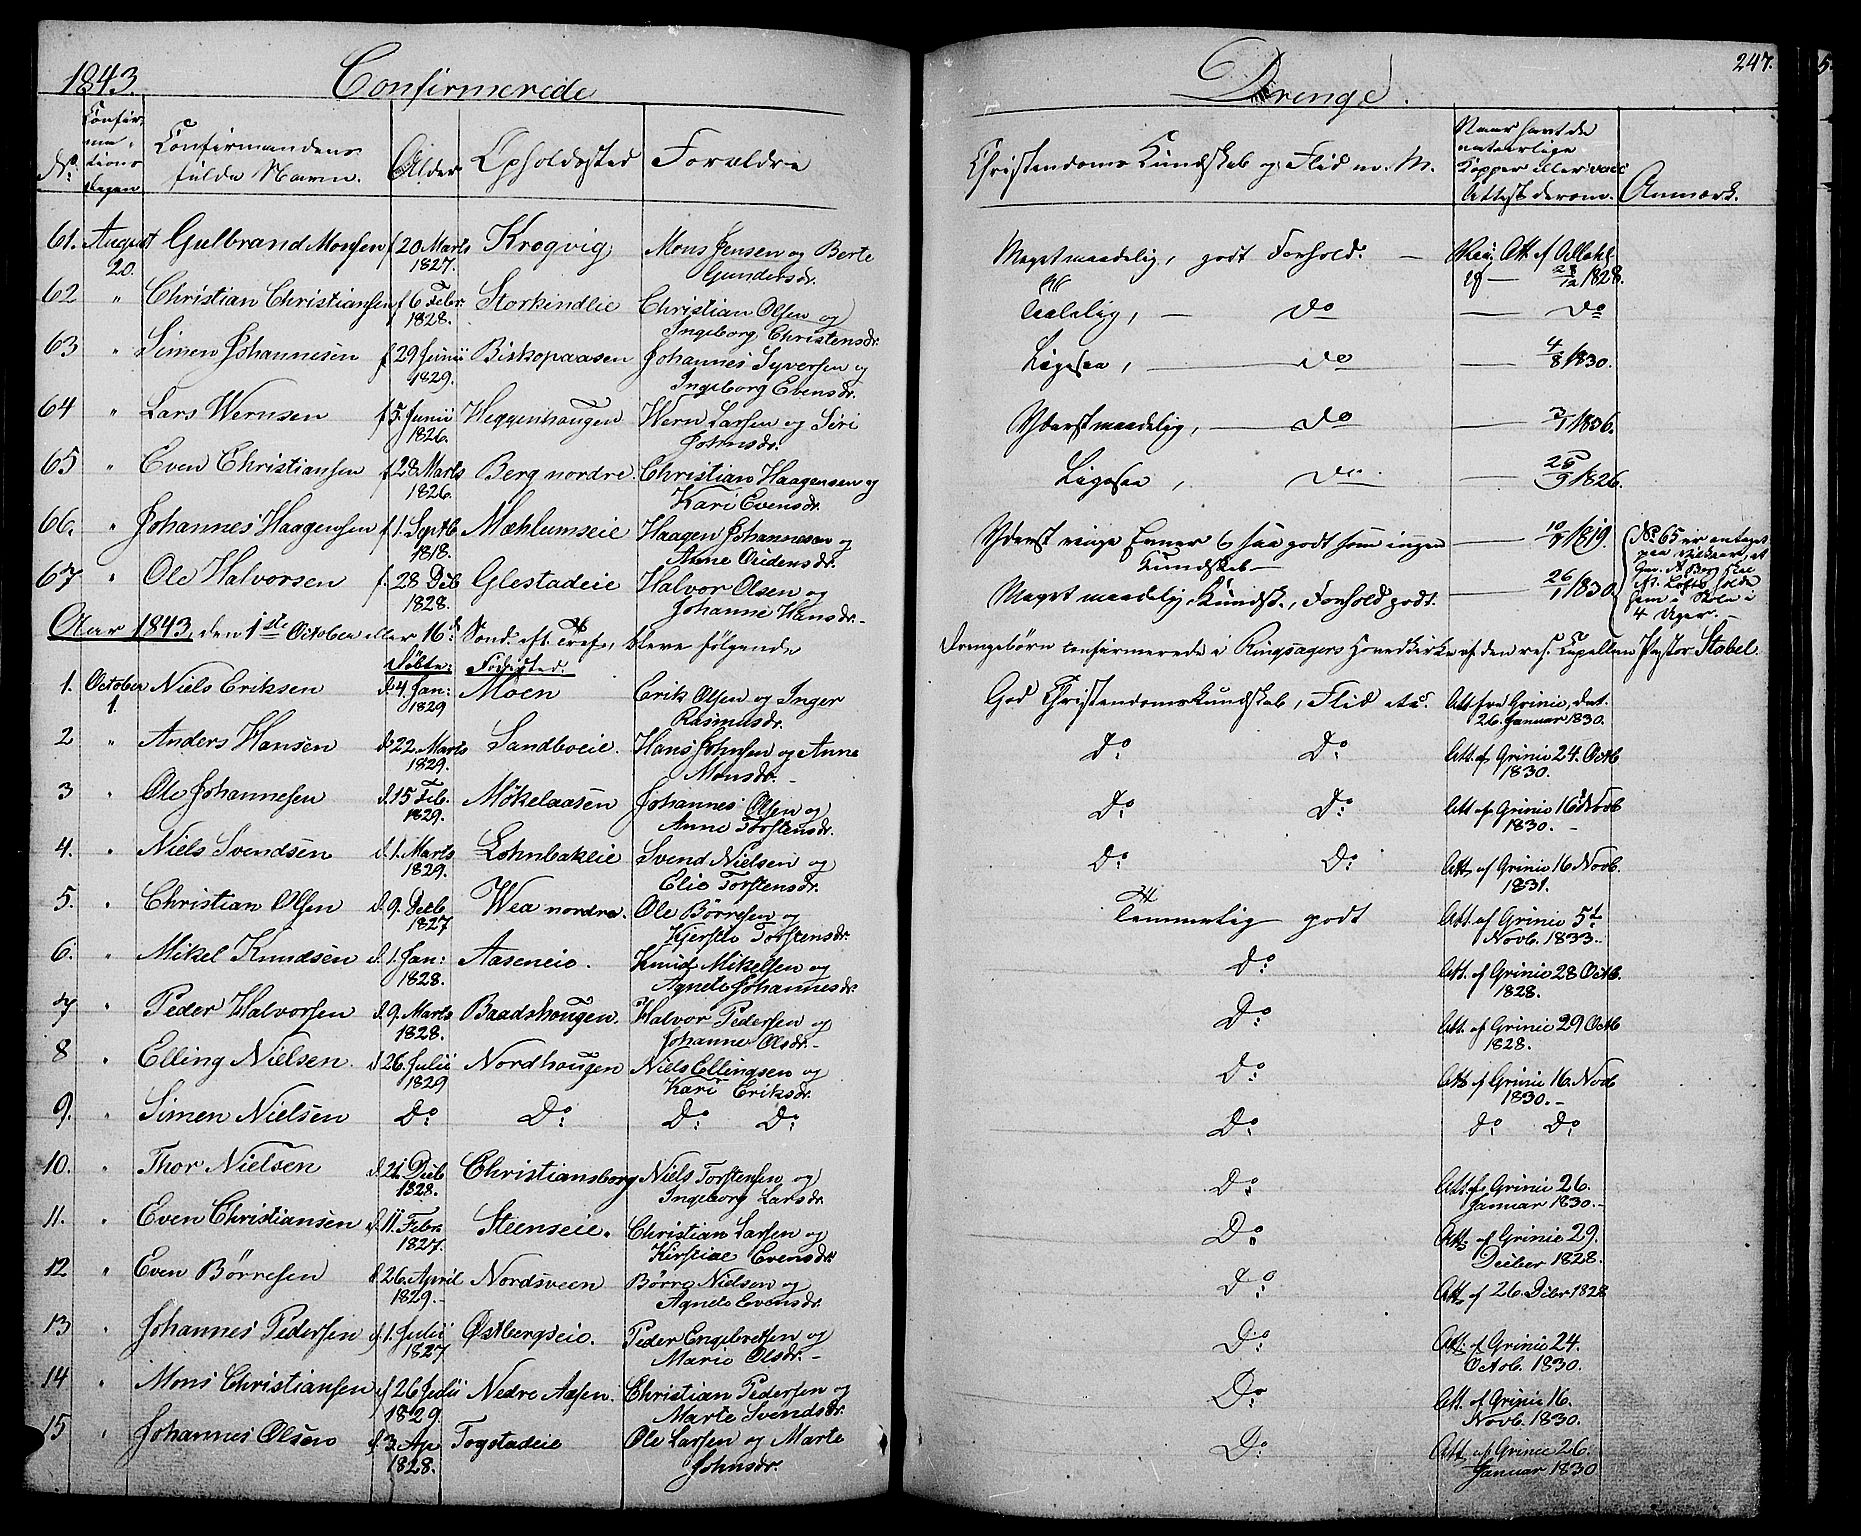 1843. Confirmerede Drenge. 247.
No. Confirmationsdagen Confirmandens fulde Navn. Alder Opholdssted Forældre Christendoms Kundskab og Flid m. M. Naar havt de naturlige Kopper eller vacc Attest derom. Anmærk.
61. August 20. Gulbrand Monsen f 20 Marts 1827. Krogvig Mons Jensen og Berte Gundersdr. Meget maadelig, godt Forhold. — Att. af 28/12 1828.
62 " Christian Christiansen f 6 Febr. 1828. Storkindlie Christian Olsen og Ingeborg Christensdr. Taalelig, — do — do
63 " Simen Johannesen f 29 Junii 1829. Biskopaasen Johannes Syversen og Ingeborg Evensdr. Ligesaa, — do — 4/8 1830.
64 " Lars Wernsen f 5. Junii 1826. Heggenhaugen Wern Larsen og Siri Johnsdr. Yderst maadelig, — do —
65 " Even Christiansen f 28 Marts 1826. Berg nordre. Christian Haagensen og Kari Evensdr. Ligesaa, do. — 25/9 1826.
66. " Johannes Haagensen f. 1. Septb 1818. Mæhlumseie Haagen Johannesen og Anne Audensdr. Yderst ringe Evner & saa godt som ingen Kundskab — 1819. No. 65 er antaget paa Vilkaar, at Gm. N. Berg skal holde ham i Skole i 4 Uger. —
67 " Ole Halvorsen f. 28 Deb 1828. Glestadeie Halvor Olsen og Johanne Hansdr. — Meget maadelig Kundsk., Forhold godt. — 26/1 1830
Aar 1843, den 1ste October eller 16de Sond. eft. Tref., bleve følgende Drengebørn confirmerede i Ringsagers Hovedkirke af den res. Capellan Pastor Stabel.
Døbte: Fødested.
1. October 1. Niels Eriksen d. 4. Jan: 1829 Moen Erik Olsen og Inger Rasmusdr. God Christendomskundskab, Flid etc. Att fra Grinie, dat. 26. Januar 1830.
2 " Anders Hansen d. 22. Marts 1829. Sandboeie. Hans Johnsen og Anne Monsdr. — Do Do Att. af Grinie 24. Octb 1830.
3 " Ole Johannesen d. 15 Feb. 1829. Møkelaasen Johannes Olsen og Anne Torstensdr. Do Do Att af Grinie 16 Novb 1830. —
4. " Niels Svendsen d. 1. Marts 1829. Lohnbakeie Svend Nielsen og Elie Torstensdr. Do Do Att af Grinie 16 Novb. 1831.
5. " Christian Olsen d. 9. Decb 1827 Wea nordre. Ole Børresen og Kjerstie Torstensdr. Temmelig godt Att. af Grinie 5te Novb. 1833.
6. " Mikel Knudsen d. 1. Jan: 1828. Aaseneie. Knud Mikelsen og Agnete Johannesdr. Do Att. af Grinie 28 Octb. 1828.
7 " Peder Halvorsen d. 9. Marts 1828. Baadshaugen. Halvor Pedersen og Johanne Olsdr. — Do Att. af Grinie 29 Octb 1828.
8 " Elling Nielsen. d. 26. Julii 1829 Nordhaugen Niels Ellingsen og Kari Eriksdr. Do Att af Grinie 16. Novb 1830. —
9. " Simen Nielsen Do Do Do Do Do Do Do
10. " Thor Nielsen d. 21. Decb 1828. Christiansborg Niels Torstensen og Ingeborg Larsdr. Do Att. af Grinie 26. Januar 1830. —
11. " Even Christiansen d. 11. Febr. 1827. Steenseie. Christian Larsen og Kirstine Evensdr. Do Att. af Grinie 29. Deceber 1828.
12 " Even Børresen d. 26. April 1829. — Nordsveen Børre Nielsen og Agnete Evensdr. Do Att. af 26. Decbr 1828
13 " Johannes Pedersen d. 1. Julii 1827 Østbergseie. Peder Engebretsen og Marie Olsdr. — Do Att. af Grinie 24. Octob. 1830.
14 " Mons Christiansen d. 26 Julii 1829. Nedre Aasen. Christian Pedersen og Marte Svendsdr. Do Att. af Grinie 16. Novb. 1830.
15 " Johannes Olsen d. 3. Ap 1828. Fogstadeie Ole Larsen og Marte Johnsdr. Do Att af Grinie 26. Januar 1830